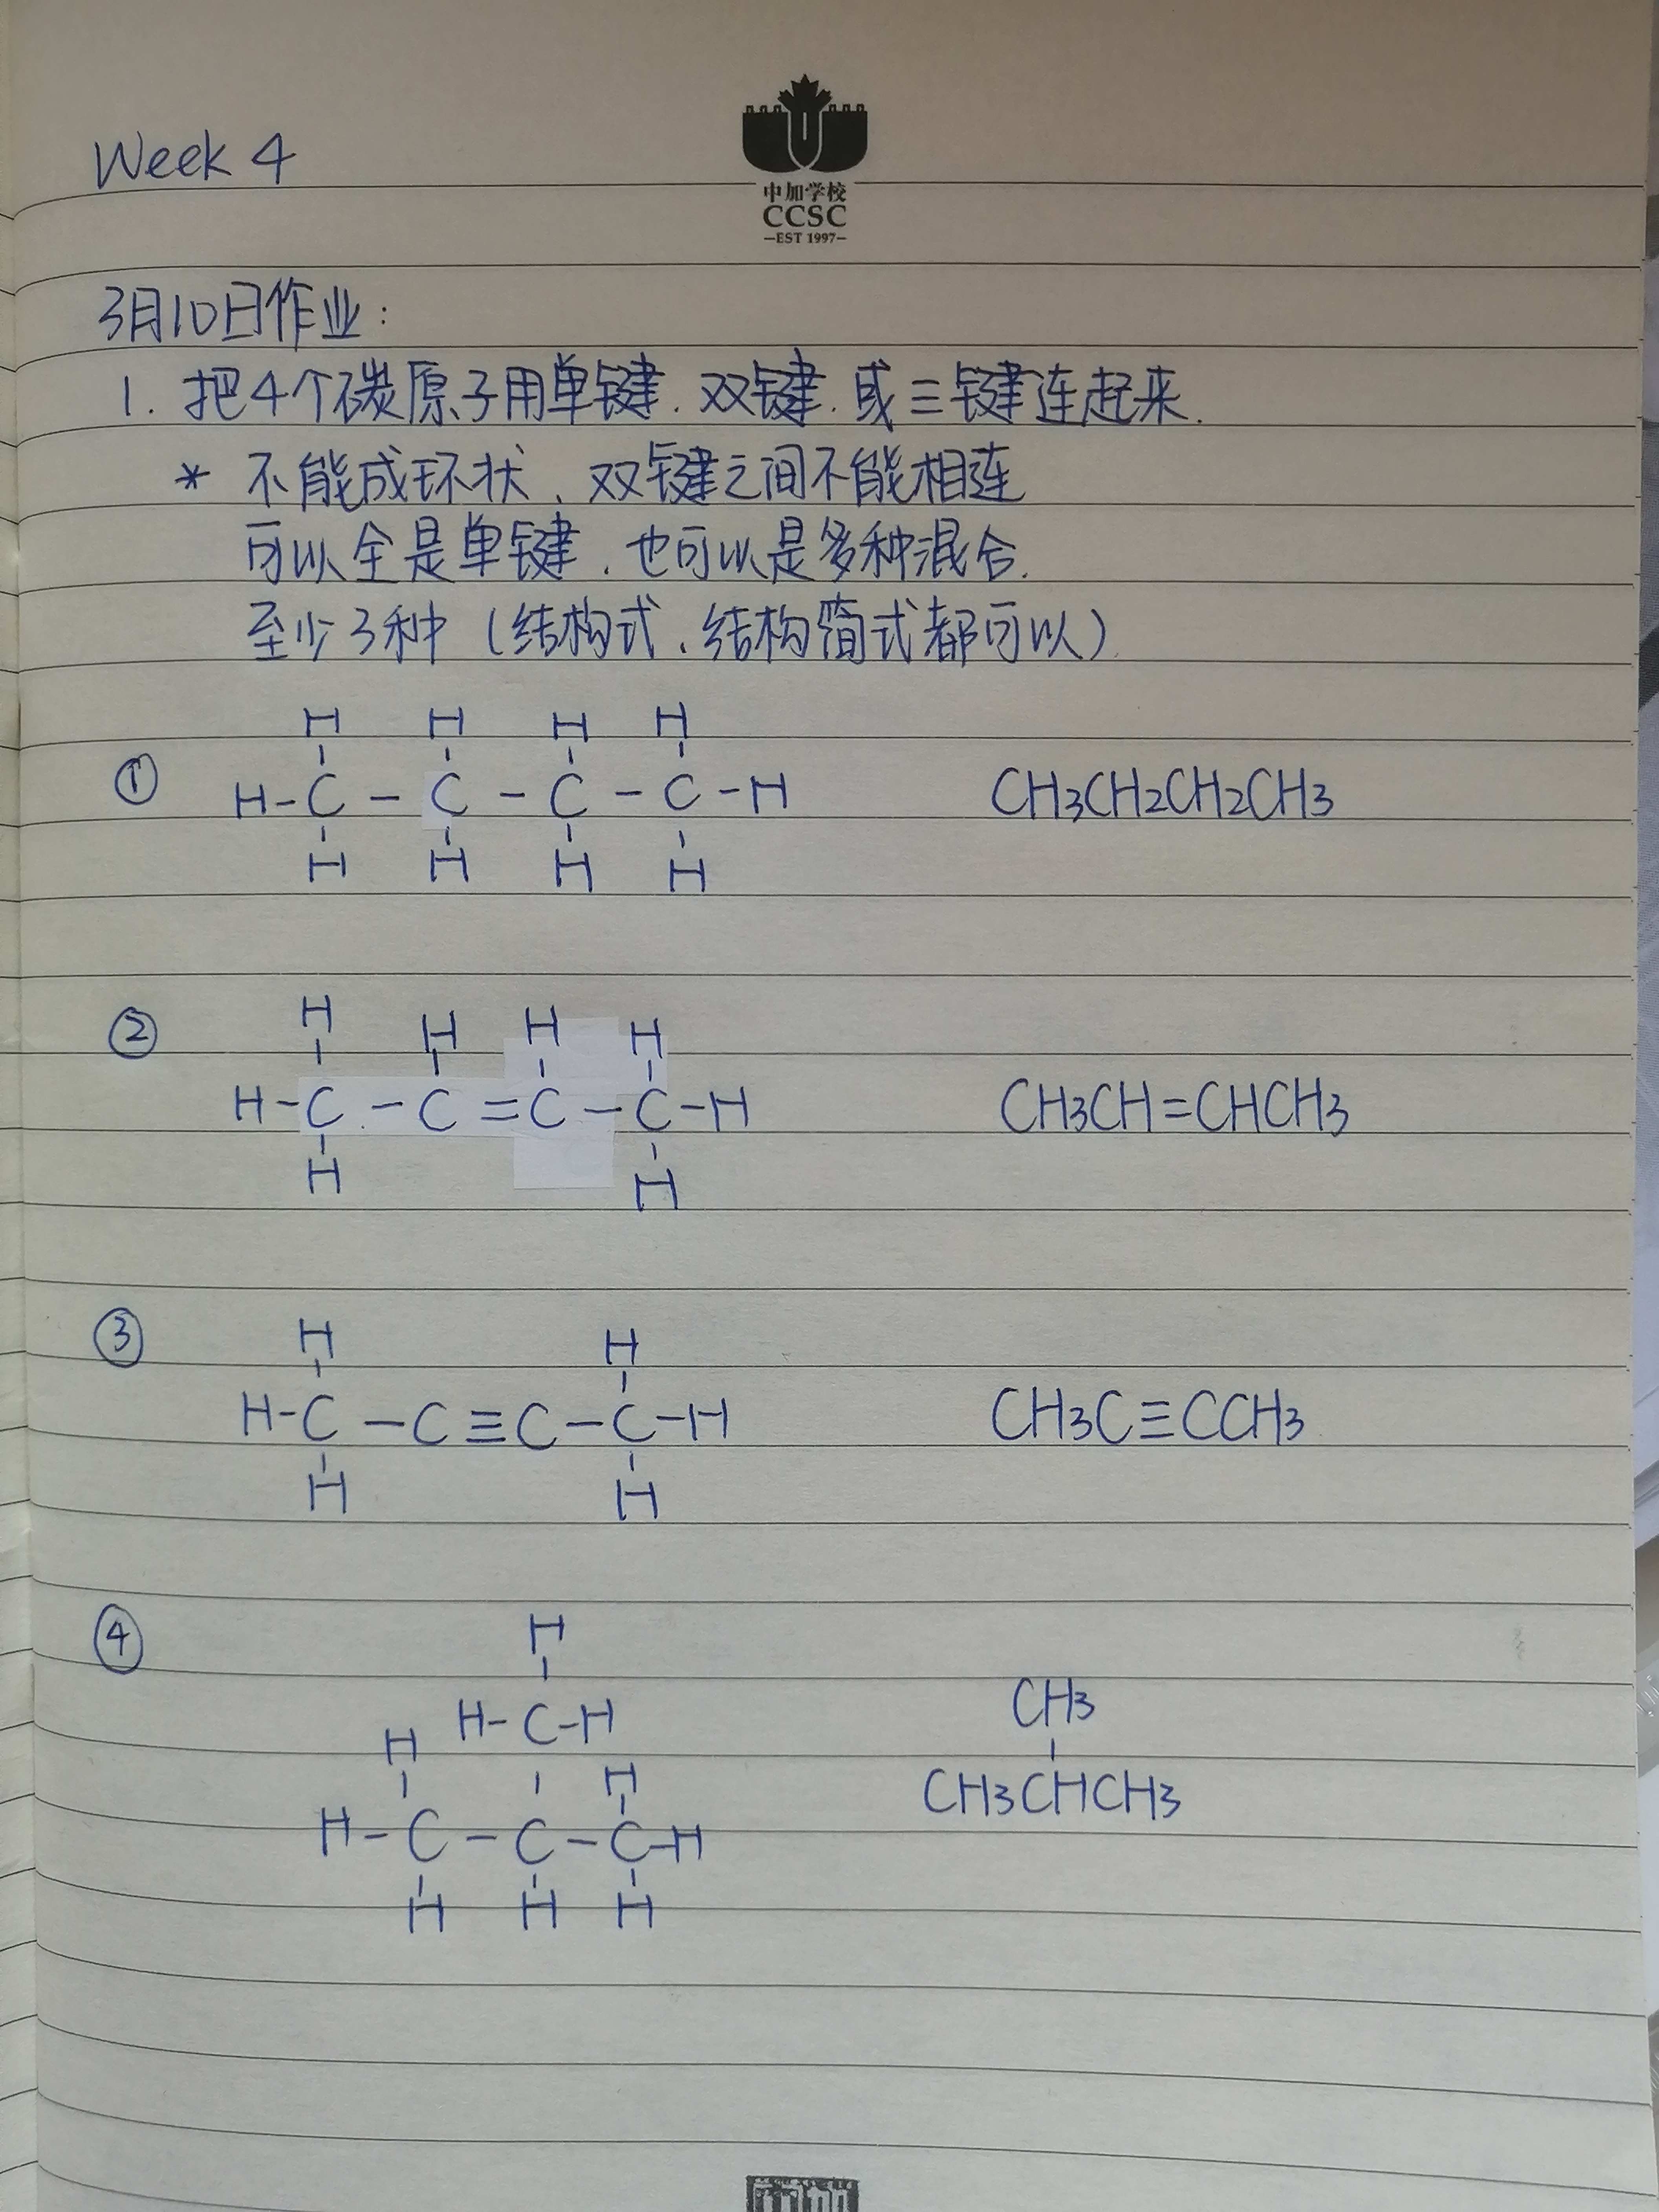 Week 4
中加学校
CCSC
-EST 1997-
3月10日作业:
1. 把4个碳原子用单键.双键.或三键连起来.
* 不能成环状、双键之间不能相连
可以全是单键.也可以是多种混合.
至少3种(结构式、结构简式都可以).
H H H H
① H-C-C-C-C-H CH3CH2CH2CH3
H H H H
② H H H H
H-C-C=C-C-H CH3CH=CHCH3
H H
③ H H
H-C-C≡C-C-H CH3C≡CCH3
H H
④ H
H-C-H CH3
H H
H-C-C-C-H CH3CHCH3
H H H